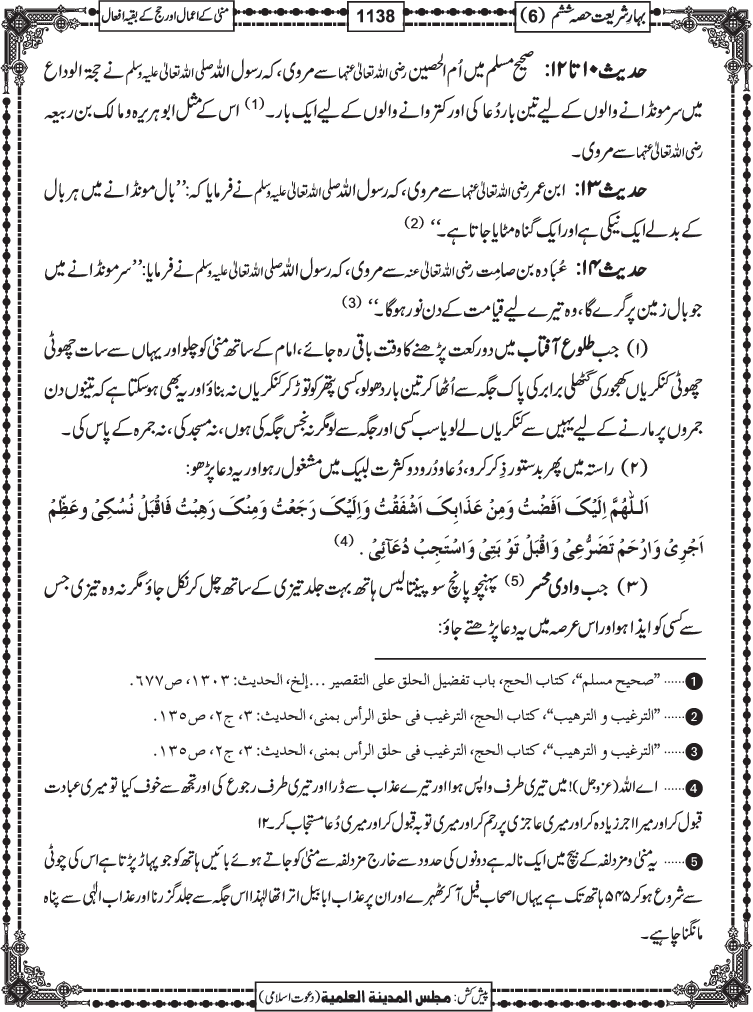 بہارِ شریعت حصہ ششم (6)
1138
منیٰ کے اعمال اور حج کے بقیہ افعال
حدیث ۱۰ تا ۱۲: صحیح مسلم میں اُم الحصین رضی اللہ تعالیٰ عنہا سے مروی، کہ رسول اللہ صلی اللہ تعالیٰ علیہ وسلم نے حجۃ الوداع
میں سر مونڈانے والوں کے لیے تین بار دُعا کی اور کتروانے والوں کے لیے ایک بار۔(1) اس کے مثل ابوہریرہ و مالک بن ربیعہ
رضی اللہ تعالیٰ عنہما سے مروی۔
حدیث ۱۳: ابن عمر رضی اللہ تعالیٰ عنہما سے مروی، کہ رسول اللہ صلی اللہ تعالیٰ علیہ وسلم نے فرمایا کہ: ’’بال مونڈانے میں ہر بال
کے بدلے ایک نیکی ہے اور ایک گناہ مٹایا جاتا ہے۔‘‘ (2)
حدیث ۱۴: عُبادہ بن صامِت رضی اللہ تعالیٰ عنہ سے مروی، کہ رسول اللہ صلی اللہ تعالیٰ علیہ وسلم نے فرمایا: ’’سر مونڈانے میں
جو بال زمین پر گرے گا، وہ تیرے لیے قیامت کے دن نور ہوگا۔‘‘ (3)
(۱) جب طلوعِ آفتاب میں دو رکعت پڑھنے کا وقت باقی رہ جائے، امام کے ساتھ منیٰ کو چلو اور یہاں سے سات چھوٹی
چھوٹی کنکریاں کھجور کی گٹھلی برابر کی پاک جگہ سے اُٹھا کر تین بار دھولو، کسی پتھر کو توڑ کر کنکریاں نہ بناؤ اور یہ بھی ہوسکتا ہے کہ تینوں دن
جمروں پر مارنے کے لیے یہیں سے کنکریاں لے لو یا سب کسی اور جگہ سے لو مگر نہ نجس جگہ کی ہوں، نہ مسجد کی، نہ جمرہ کے پاس کی۔
(۲) راستہ میں پھر بدستور ذِکر کرو، دُعا و درود و کثرت لبیک میں مشغول رہو اور یہ دعا پڑھو:
اَللّٰهُمَّ اِلَيْكَ اَفَضْتُ وَمِنْ عَذَابِكَ اَشْفَقْتُ وَاِلَيْكَ رَجَعْتُ وَمِنْكَ رَهِبْتُ فَاقْبَلْ نُسُكِیْ وعَظِّمْ
اَجْرِیْ وَارْحَمْ تَضَرُّعِیْ وَاقْبَلْ تَوْبَتِیْ وَاسْتَجِبْ دُعَآئِیْ . (4)
(۳) جب وادی محسر (5) پہنچو پانچ سو پینتالیس ہاتھ بہت جلد تیزی کے ساتھ چل کر نکل جاؤ مگر نہ وہ تیزی جس
سے کسی کو ایذا ہو اور اس عرصہ میں یہ دعا پڑھتے جاؤ:
1 ...... ”صحيح مسلم“، كتاب الحج، باب تفضيل الحلق على التقصير ...إلخ، الحديث: ١٣٠٣، ص٦٧٧.
2 ...... ”الترغيب و الترهيب“، كتاب الحج، الترغيب فى حلق الرأس بمنى، الحديث: ٣، ج٢، ص١٣٥.
3 ...... ”الترغيب و الترهيب“، كتاب الحج، الترغيب فى حلق الرأس بمنى، الحديث: ٣، ج٢، ص١٣٥.
4 ...... اے اللہ (عزوجل)! میں تیری طرف واپس ہوا اور تیرے عذاب سے ڈرا اور تیری طرف رجوع کی اور تجھ سے خوف کیا تو میری عبادت
قبول کر اور میرا اجر زیادہ کر اور میری عاجزی پر رحم کر اور میری توبہ قبول کر اور میری دُعا مستجاب کر۔۱۲
5 ...... یہ منیٰ و مزدلفہ کے بیچ میں ایک نالہ ہے دونوں کی حدود سے خارج مزدلفہ سے منیٰ کو جاتے ہوئے بائیں ہاتھ کو جو پہاڑ پڑتا ہے اس کی چوٹی
سے شروع ہو کر ۵۴۵ ہاتھ تک ہے یہاں اصحاب فیل آکر ٹھہرے اور ان پر عذاب ابابیل اترا تھا لہٰذا اس جگہ سے جلد گزرنا اور عذاب الٰہی سے پناہ
مانگنا چاہیے۔
پیش کش: مجلس المدينة العلمية (دعوت اسلامی)